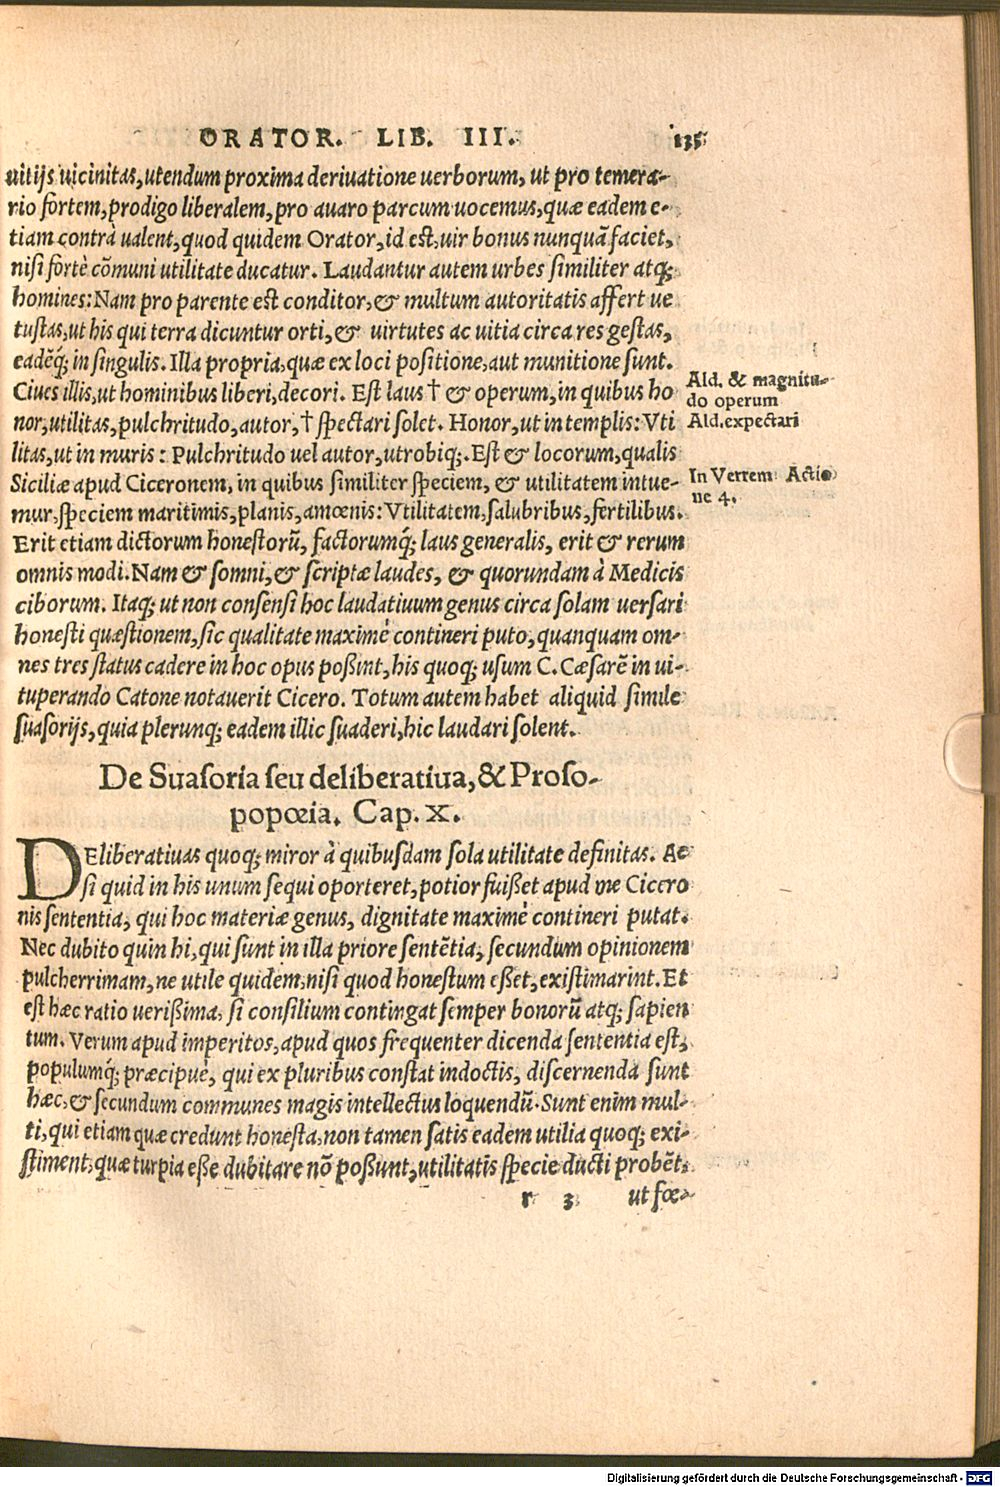 ORATOR. LIB. III. 135
uitijs uicinitas, utendum proxima deriuatione uerborum, ut pro temera-
rio fortem, prodigo liberalem, pro auaro parcum uocemus, quæ eadem e-
tiam contrà ualent, quod quidem Orator, id est, uir bonus nunquā faciet,
nisi fortè cōmuni utilitate ducatur. Laudantur autem urbes similiter atq;
homines: Nam pro parente est conditor, & multum autoritatis affert ue
tustas, ut his qui terra dicuntur orti, & uirtutes ac uitia circa res gestas,
eadēq́; in singulis. Illa propria, quæ ex loci positione, aut munitione sunt.
Ciues illis, ut hominibus liberi, decori. Est laus † & operum, in quibus ho
nor, utilitas, pulchritudo, autor, † spectari solet. Honor, ut in templis: Vti
litas, ut in muris: Pulchritudo uel autor, utrobiq;. Est & locorum, qualis
Siciliæ apud Ciceronem, in quibus similiter speciem, & utilitatem intue-
mur, speciem maritimis, planis, amœnis: Vtilitatem, salubribus, fertilibus.
Erit etiam dictorum honestorū, factorumq́; laus generalis, erit & rerum
omnis modi. Nam & somni, & scriptæ laudes, & quorundam à Medicis
ciborum. Itaq; ut non consensi hoc laudatiuum genus circa solam uersari
honesti quæstionem, sic qualitate maximè contineri puto, quanquam om-
nes tres status cadere in hoc opus poßint, his quoq; usum C. Cæsarē in ui-
tuperando Catone notauerit Cicero. Totum autem habet aliquid simile
suasorijs, quia plerunq; eadem illic suaderi, hic laudari solent.
Ald. & magnitu-
do operum
Ald. expectari
In Verrem Actio
ne 4.
De Suasoria seu deliberatiua, & Proso-
popœia. Cap. X.
DEliberatiuas quoq; miror à quibusdam sola utilitate definitas. Ac
si quid in his unum sequi oporteret, potior fuißet apud me Cicero
nis sententia, qui hoc materiæ genus, dignitate maximè contineri putat.
Nec dubito quin hi, qui sunt in illa priore sentētia, secundum opinionem
pulcherrimam, ne utile quidem, nisi quod honestum eßet, existimarint. Et
est hæc ratio uerißima, si consilium contingat semper bonorū atq; sapien
tum. Verum apud imperitos, apud quos frequenter dicenda sententia est,
populumq́; præcipuè, qui ex pluribus constat indoctis, discernenda sunt
hæc, & secundum communes magis intellectus loquendū. Sunt enim mul-
ti, qui etiam quæ credunt honesta, non tamen satis eadem utilia quoq; exi-
stiment, quæ turpia eße dubitare nō poßunt, utilitatis specie ducti probēt.
r 3 ut fœ-
Digitalisierung gefördert durch die Deutsche Forschungsgemeinschaft - DFG